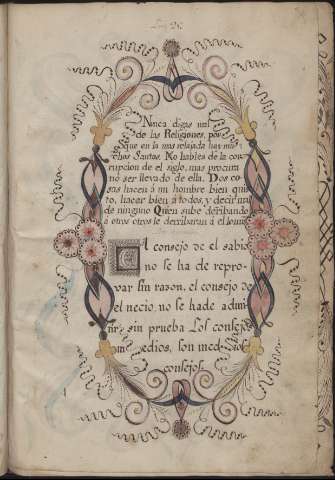 Nunca digas mal
de las Religiones, por
que en la mas relajada hay mu
chos Santos. No hables de la cor
rupcion de el siglo, mas procura
no ser llevado de ella. Dos co
sas hacen á un hombre bien quis
to, hacer bien á todos, y decir mal
de ninguno Quien sube derribando
á otros otros le derribaran á el
El consejo de el sabio
no se ha de repro
var sin razon, el consejo de
el necio, no se ha de admi
tir sin prueba Los consejos
medios, son medios
consejos